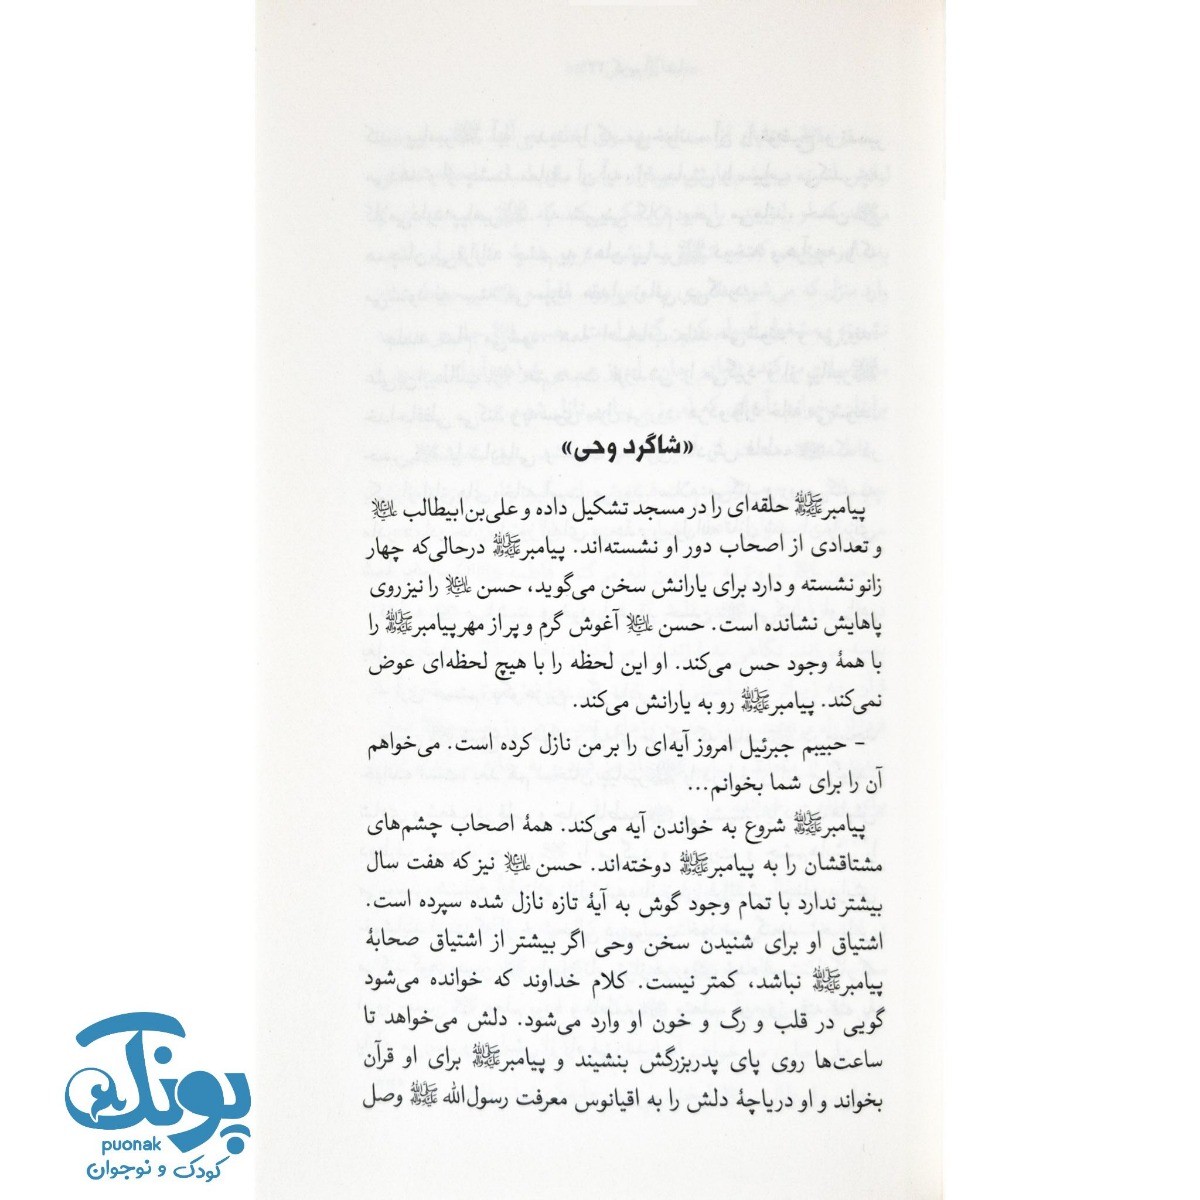 «شاگرد وحی»
پیامبرﷺ حلقه‌ای را در مسجد تشکیل داده و علی‌بن‌ابیطالب علیه‌السلام
و تعدادی از اصحاب دور او نشسته‌اند. پیامبرﷺ درحالی‌که چهار
زانو نشسته و دارد برای یارانش سخن می‌گوید، حسن علیه‌السلام را نیز روی
پاهایش نشانده است. حسن علیه‌السلام آغوش گرم و پر از مهر پیامبرﷺ را
با همهٔ وجود حس می‌کند. او این لحظه را با هیچ لحظه‌ای عوض
نمی‌کند. پیامبرﷺ رو به یارانش می‌کند.
– حبیبم جبرئیل امروز آیه‌ای را بر من نازل کرده است. می‌خواهم
آن را برای شما بخوانم...
پیامبرﷺ شروع به خواندن آیه می‌کند. همهٔ اصحاب چشم‌های
مشتاقشان را به پیامبرﷺ دوخته‌اند. حسن علیه‌السلام نیز که هفت سال
بیشتر ندارد با تمام وجود گوش به آیهٔ تازه نازل شده سپرده است.
اشتیاق او برای شنیدن سخن وحی اگر بیشتر از اشتیاق صحابهٔ
پیامبرﷺ نباشد، کمتر نیست. کلام خداوند که خوانده می‌شود
گویی در قلب و رگ و خون او وارد می‌شود. دلش می‌خواهد تا
ساعت‌ها روی پای پدربزرگش بنشیند و پیامبرﷺ برای او قرآن
بخواند و او دریاچهٔ دلش را به اقیانوس معرفت رسول‌الله ﷺ وصل
پونک
puonak
کودک و نوجوان